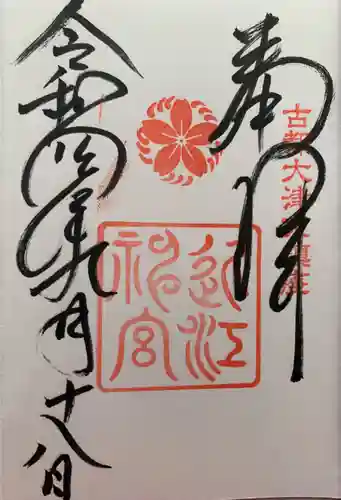 奉拝
古都大津
近江
神宮
令和四年九月十八日